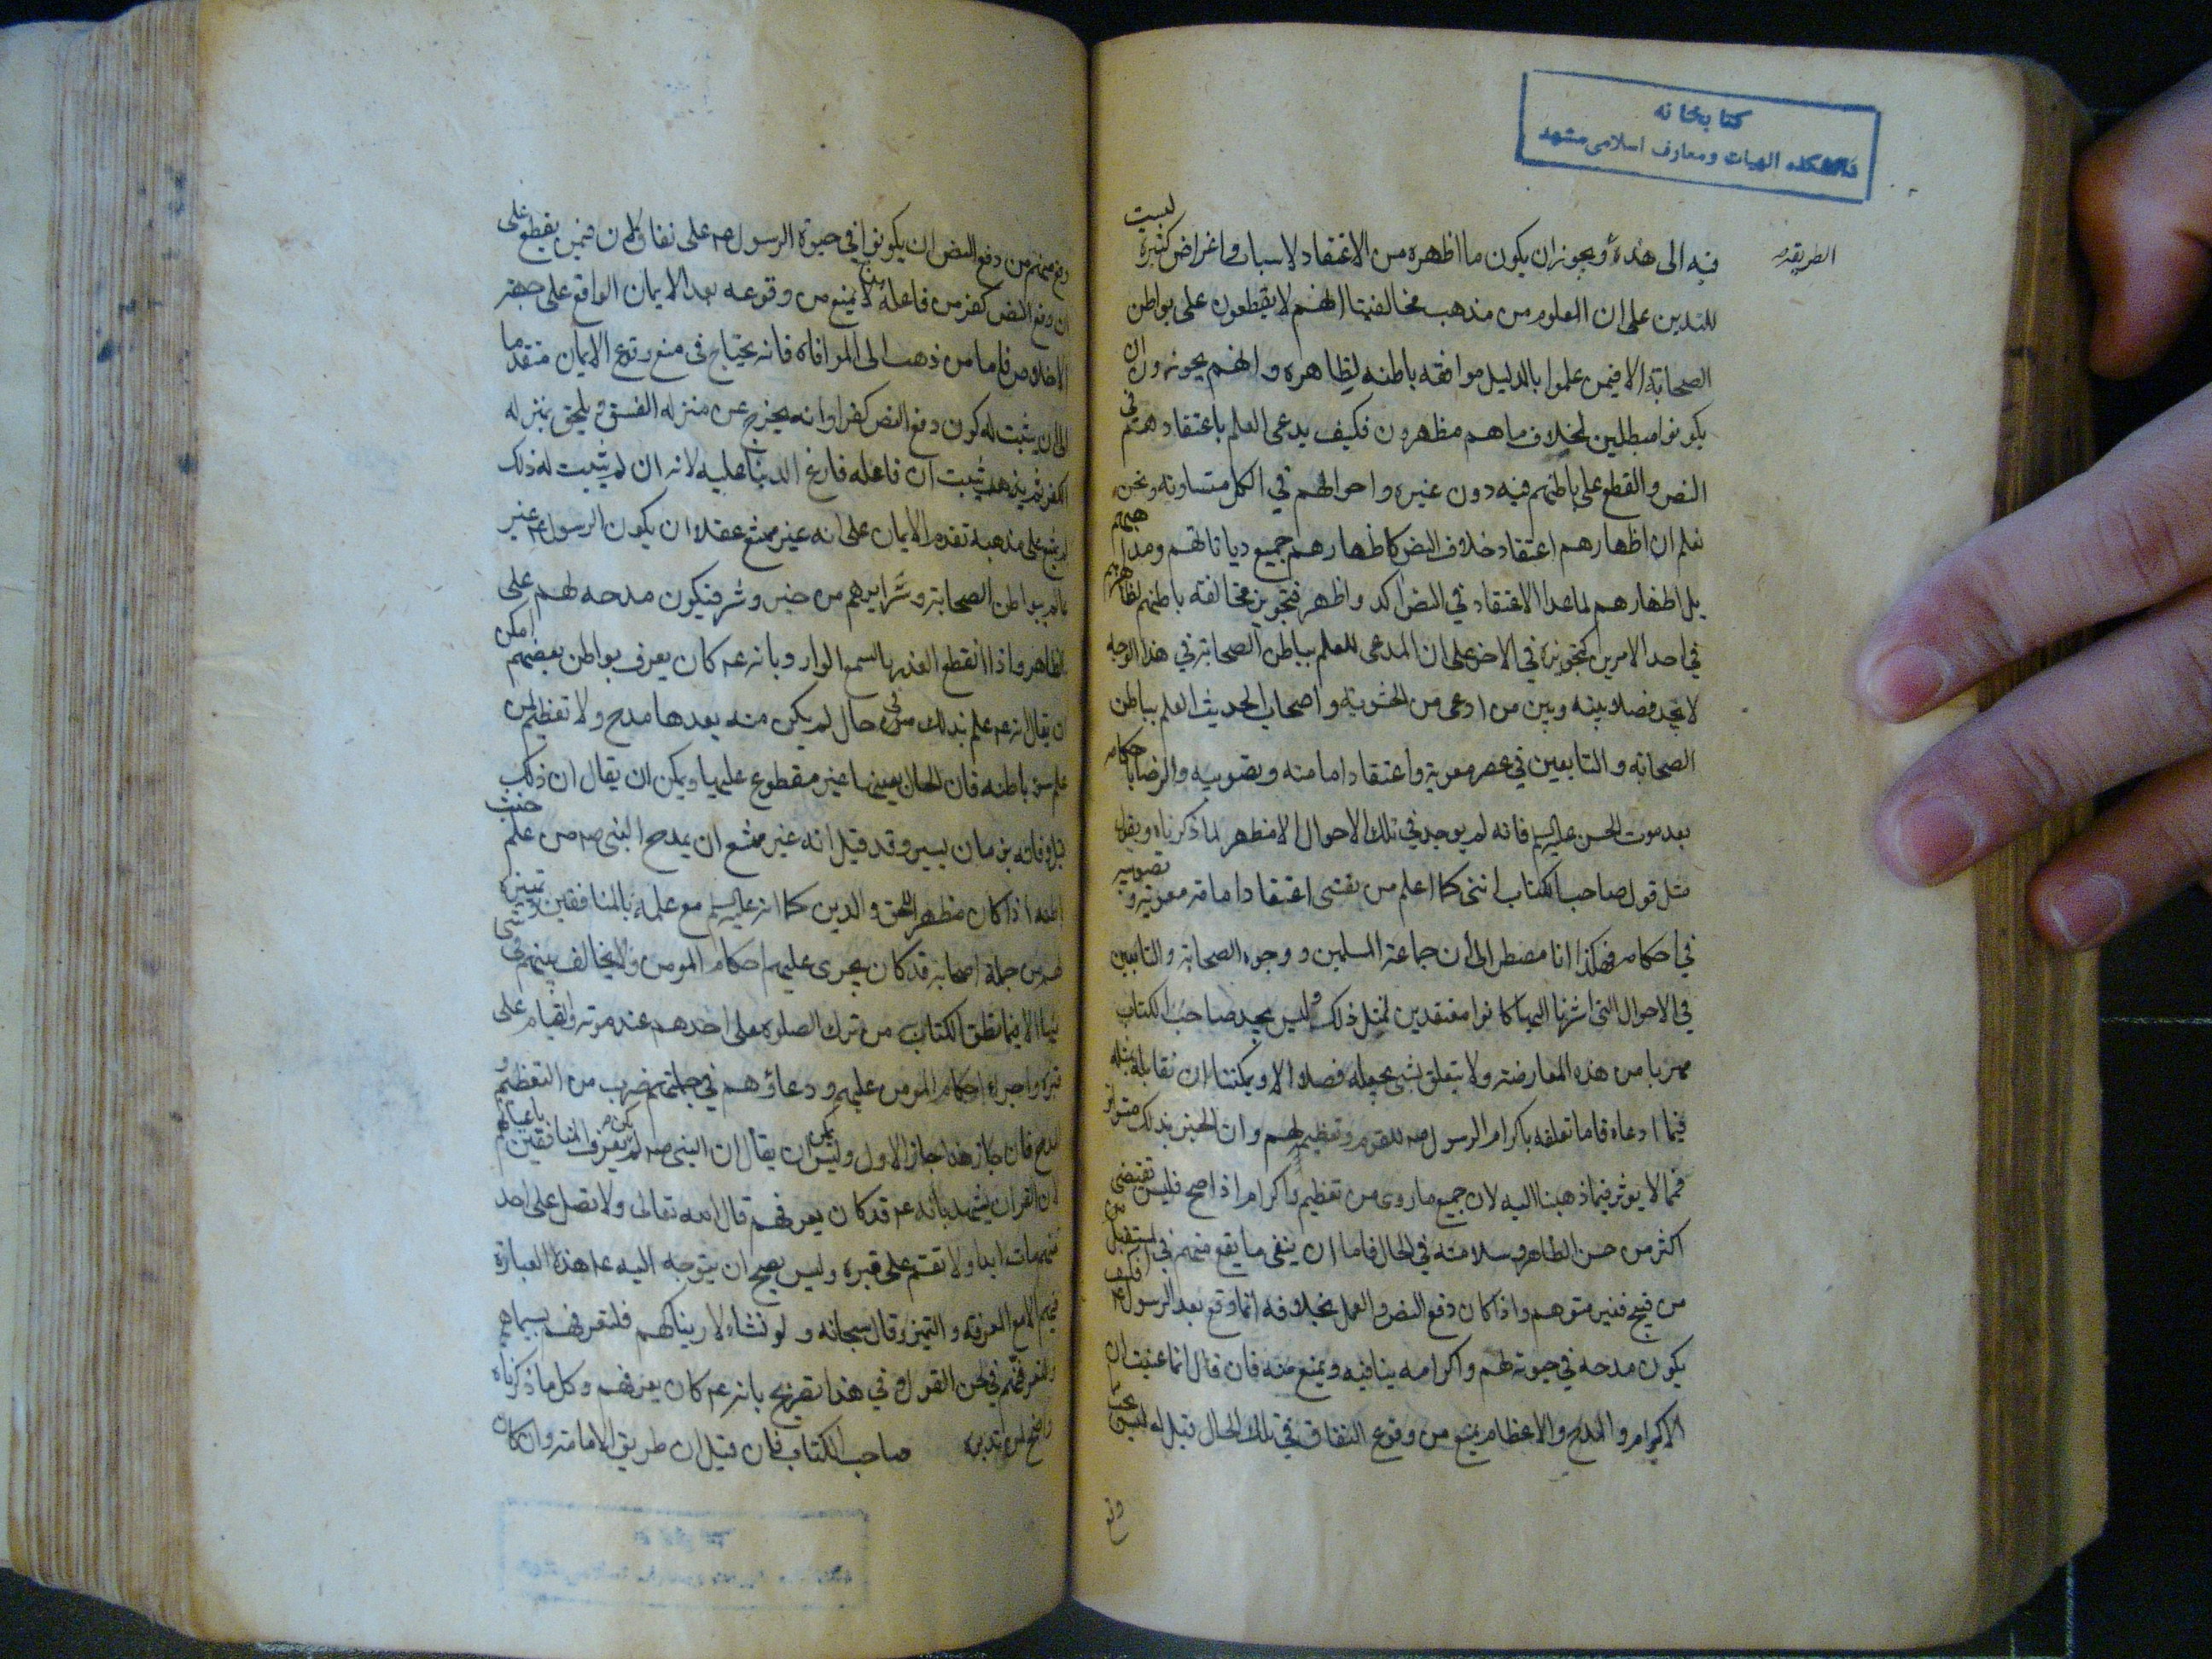 كتابخانه
دانشكده الهيات ومعارف اسلامى مشهد
الطريقة
فيه الى هذه ويجوز ان يكون ما اظهره من الاعتقاد لاسباب واغراض كثيرة ليست
للتدين على ان المعلوم من مذهب مخالفينا انهم لا يقطعون على بواطن
الصحابة الا فيمن علموا بالدليل موافقه باطنه لظاهره وانهم يجوزون ان
يكونوا مبطلين لخلاف ما هم مظهرون فكيف يدعى العلم باعتقادهم في
النص والقطع على باطنهم فيه دون غيره واحوالهم في الكل متساويه ونحن
نعلم ان اظهارهم اعتقاد خلاف النص كاظهارهم جميع دياناتهم ومذاهبهم
بل اظهارهم لما عدا الاعتقاد في النص اكد واظهر فتجويز مخالفة باطنهم لظاهرهم
في احد الامرين كتجويزه في الاخر على ان المدعى للعلم بباطن الصحابة في هذا الوجه
لا يجد فصلا بينه وبين من ادعى من الحشوية واصحاب الحديث العلم بباطن
الصحابه والتابعين في عصر معوية واعتقاد امامته وتصويبه والرضا باحكامه
بعد موت الحسن عليه السلم فانه لم يوجد في تلك الاحوال الا مظهر لما ذكرناه ويقول
مثل قول صاحب الكتاب اننى كما اعلم من نفسى اعتقاد امامة معوية وتصويبه
في احكامه فهكذا انا مضطر الى أن جماعة المسلمين ووجوه الصحابة والتابعين
في الاحوال التى اشرنا اليها كانوا معتقدين لمثل ذلك وليس يجد صاحب الكتاب
مهربا من هذه المعارضة ولا يتعلق بشى يجعله فصلا الا ويمكننا ان نقابله بمثله
فيما ادعاه فاما تعلقه باكرام الرسول صه للقوم وتعظيمه لهم وان الخبر بذلك متواتر
فمما لا يوثر فيما ذهبنا اليه لان جميع ما روى من تعظيم واكرام اذا صح فليس تقتضى
اكثر من حسن الظاهر وسلامته في الحال فاما ان ينفى ما يقع منهم في المستقبل
من قبيح فغير متوهم واذا كان دفع النص والعمل بخلافه انما وقع بعد الرسول ع فكيف
يكون مدحه في حيوته لهم واكرامه ينافيه ويمنع منه فان قال انما عنيت ان
الاكرام والمدح والاعظام يمنع من وقوع النفاق في تلك الحال قيل له ليس يجب
دفع
منهم من دفع النص ان يكونوا في حيوة الرسول صه على نفاق لان فيمن يقطع على
ان دفع النص كفر من فاعله لا يمنع من وقوعه بعد الايمان الواقع على جهة
الاخلاص فاما من ذهب الى الموافاة فانه يحتاج في منع وقوع الايمان متقدما
الى ان يثبت له كون دفع النص كفرا وانه يخرج عن منزله الفسق ويلحق بمنزله
الكفر ثم يثبت ان فاعله فارغ الدنيا عليه لانه ان لم يثبت له ذلك
لم يمنع على مذهبه تقدم الايمان على انه غير ممتنع عقلا ان يكون الرسول ع غير
عالم ببواطن الصحابة وسرايرهم من خير وشر فيكون مدحه لهم على
الظاهر واذا انقطع العذر بالسمع الوارد بانه ع كان يعرف بواطن بعضهم امكن
ان يقال انه ع علم بذلك في حال لم يكن منه بعدها مدح ولا تعظيم لمن
علم سوء باطنه فان الحال بعينها غير مقطوع عليها ويمكن ان يقال ان ذلك
قبل وفاته بزمان يسير وقد قيل انه غير ممتنع ان يمدح النبى صه من علم خبث
باطنه اذا كان مظهرا للحق والدين كما انه عليه السلم مع علمه بالمنافقين وتميزه
لهم من جملة اصحابه قد كان يجرى عليهم احكام المومن ولا يخالف بينهم في شى
منها الا فيما نطق الكتاب من ترك الصلوة على احدهم عند موته والقيام على
قبره واجراء احكام المومن عليهم ودعاؤهم في جملتهم ضرب من التعظيم و
المدح فان جاز هذا جاز الاول وليس لاحد ان يقال ان النبى صه لم يكن يعرف المنافقين باعيانهم
لان القران يشهد بانه ع قد كان يعرفهم قال الله تعالى ولا تصل على احد
منهم مات ابدا ولا تقم على قبره وليس يصح ان يتوجه اليه ع هذا العبارة
فيهم الا مع المعرفة والتميز وقال سبحانه ولو نشاء لاريناكهم فلتعرفهم بسيماهم
ولتعرفنهم في لحن القول وفي هذا تصريح بانه ع كان يعرفهم وكل ما ذكرناه
واضح لمن تدبره صاحب الكتاب فان قيل ان طريق الامامة وان كان